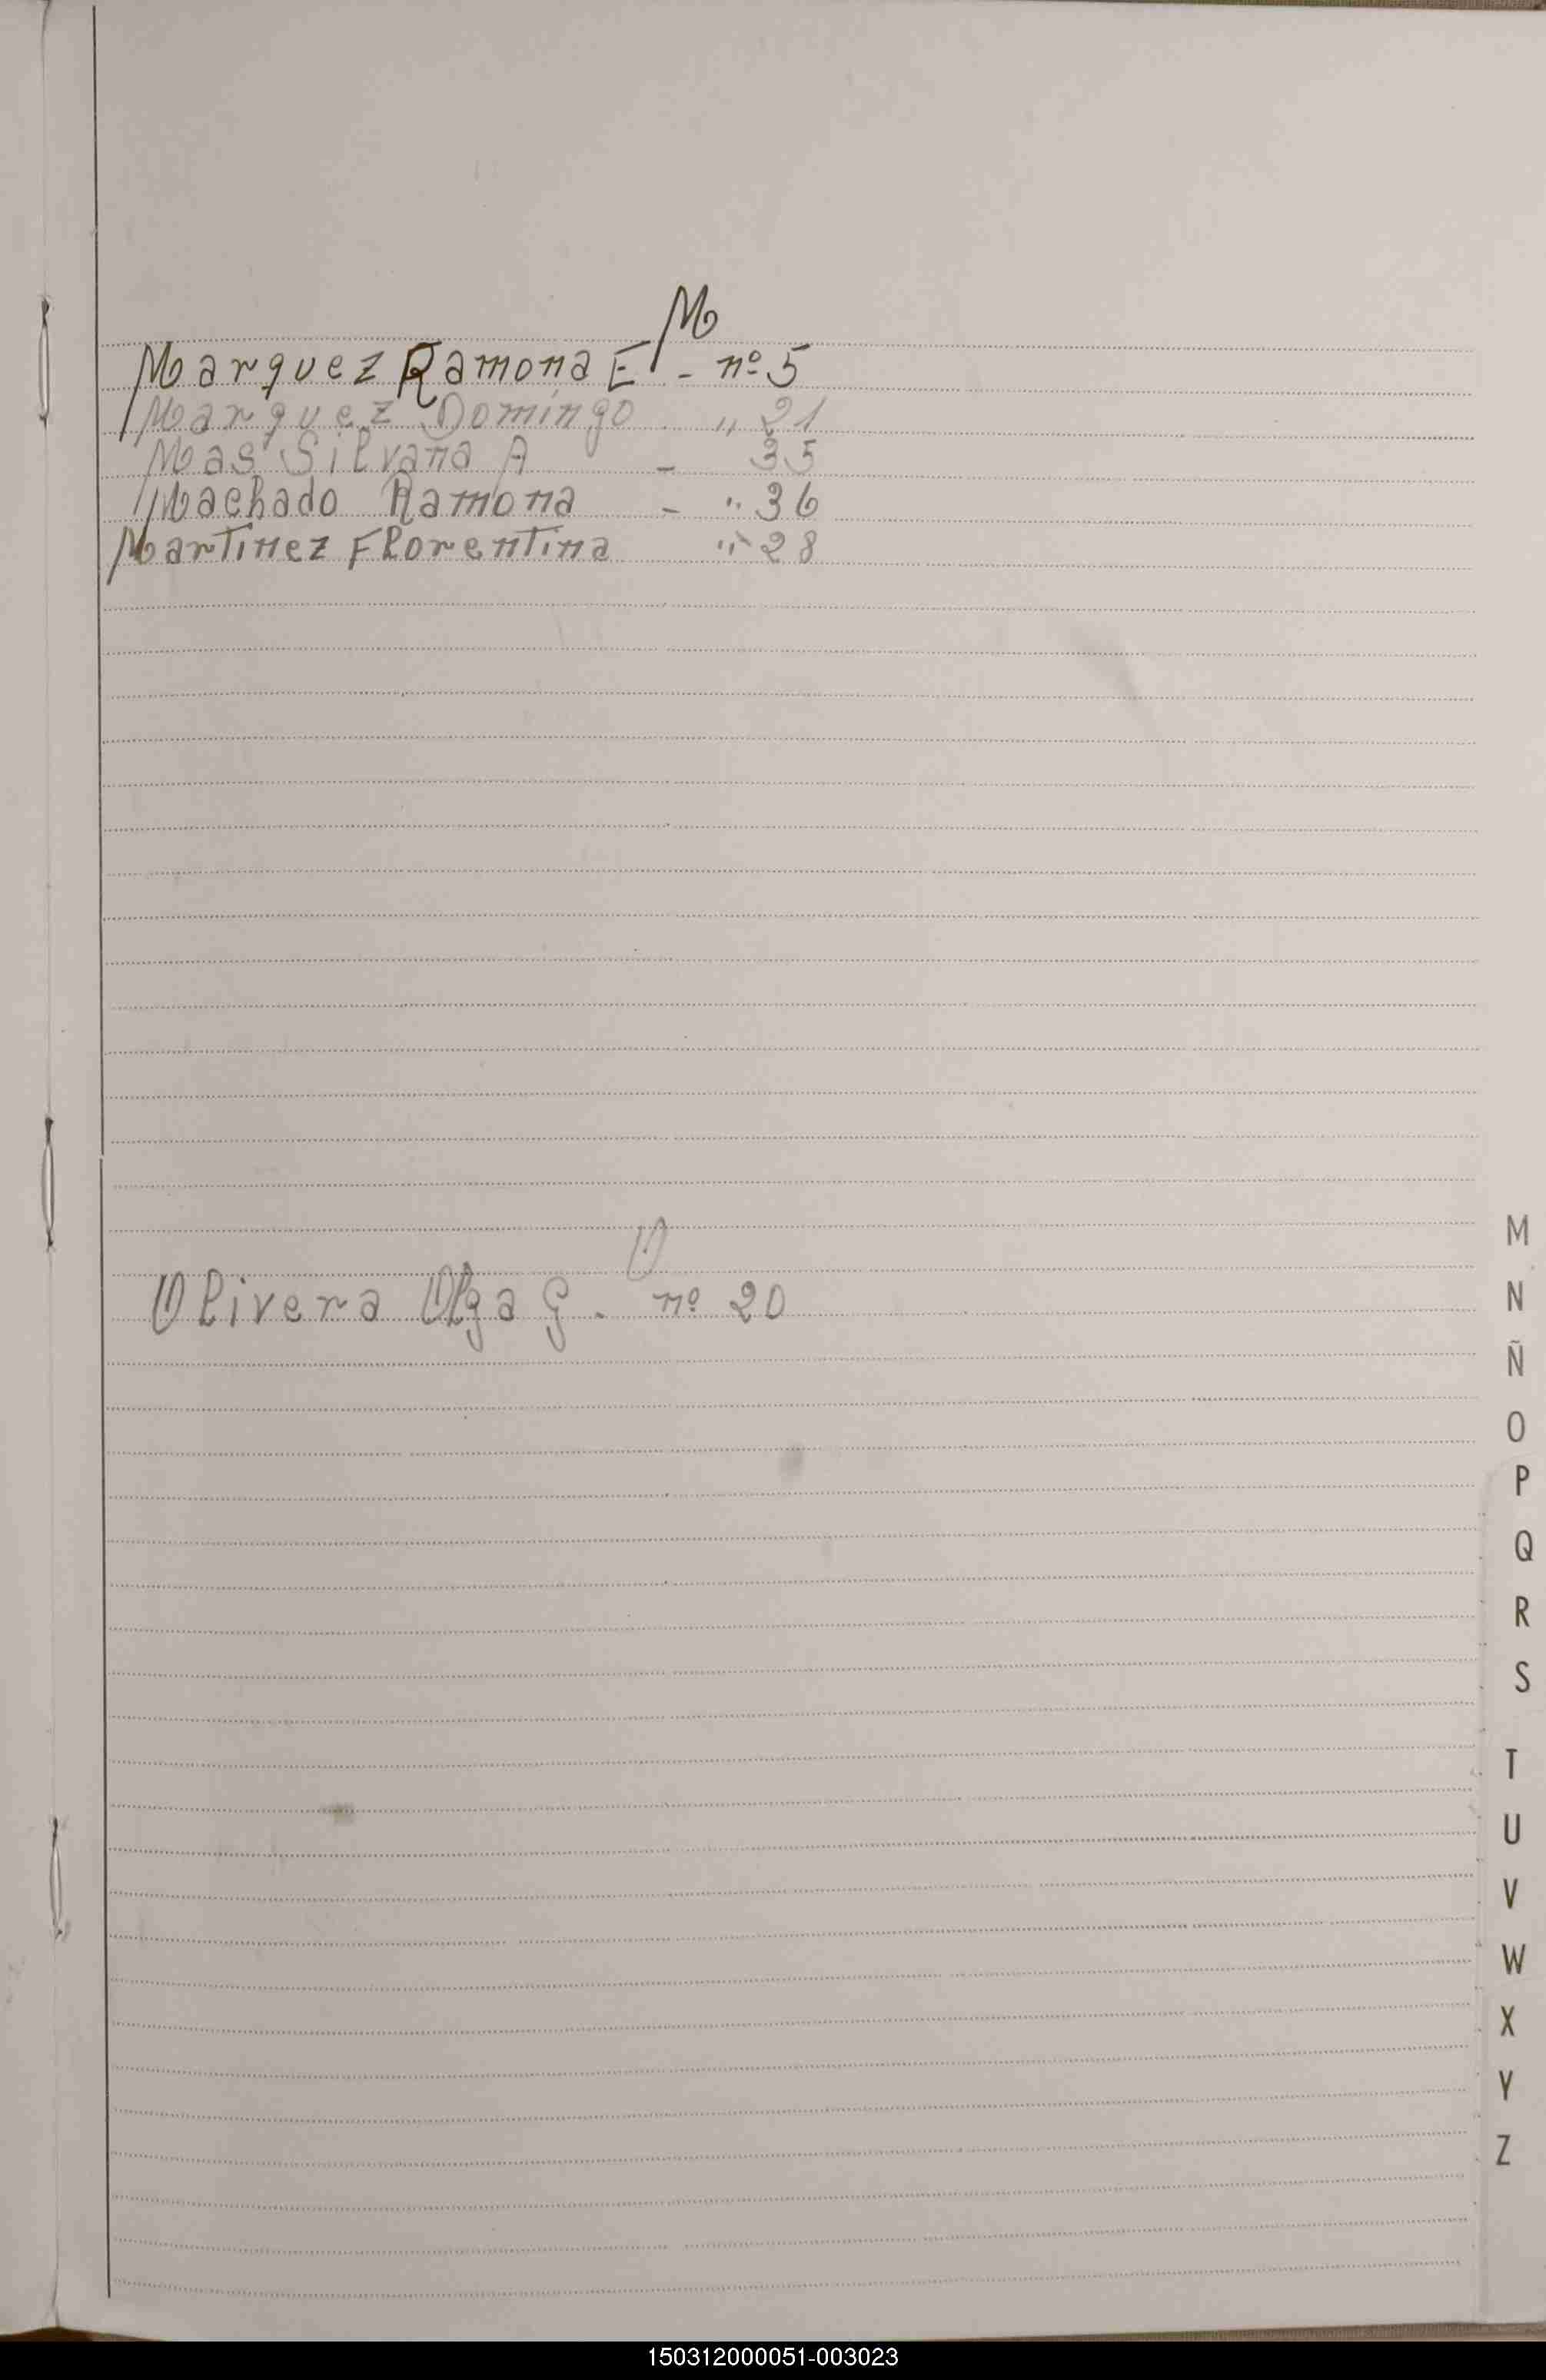 M
Marquez Ramona E - nº 5
Marquez Domingo " 21
Mas Silvana A - 35
Machado Ramona - " 36
Martinez Florentina " 28
O
Olivera Olga G. nº 20
M
N
Ñ
O
P
Q
R
S
T
U
V
W
X
Y
Z
150312000051-003023